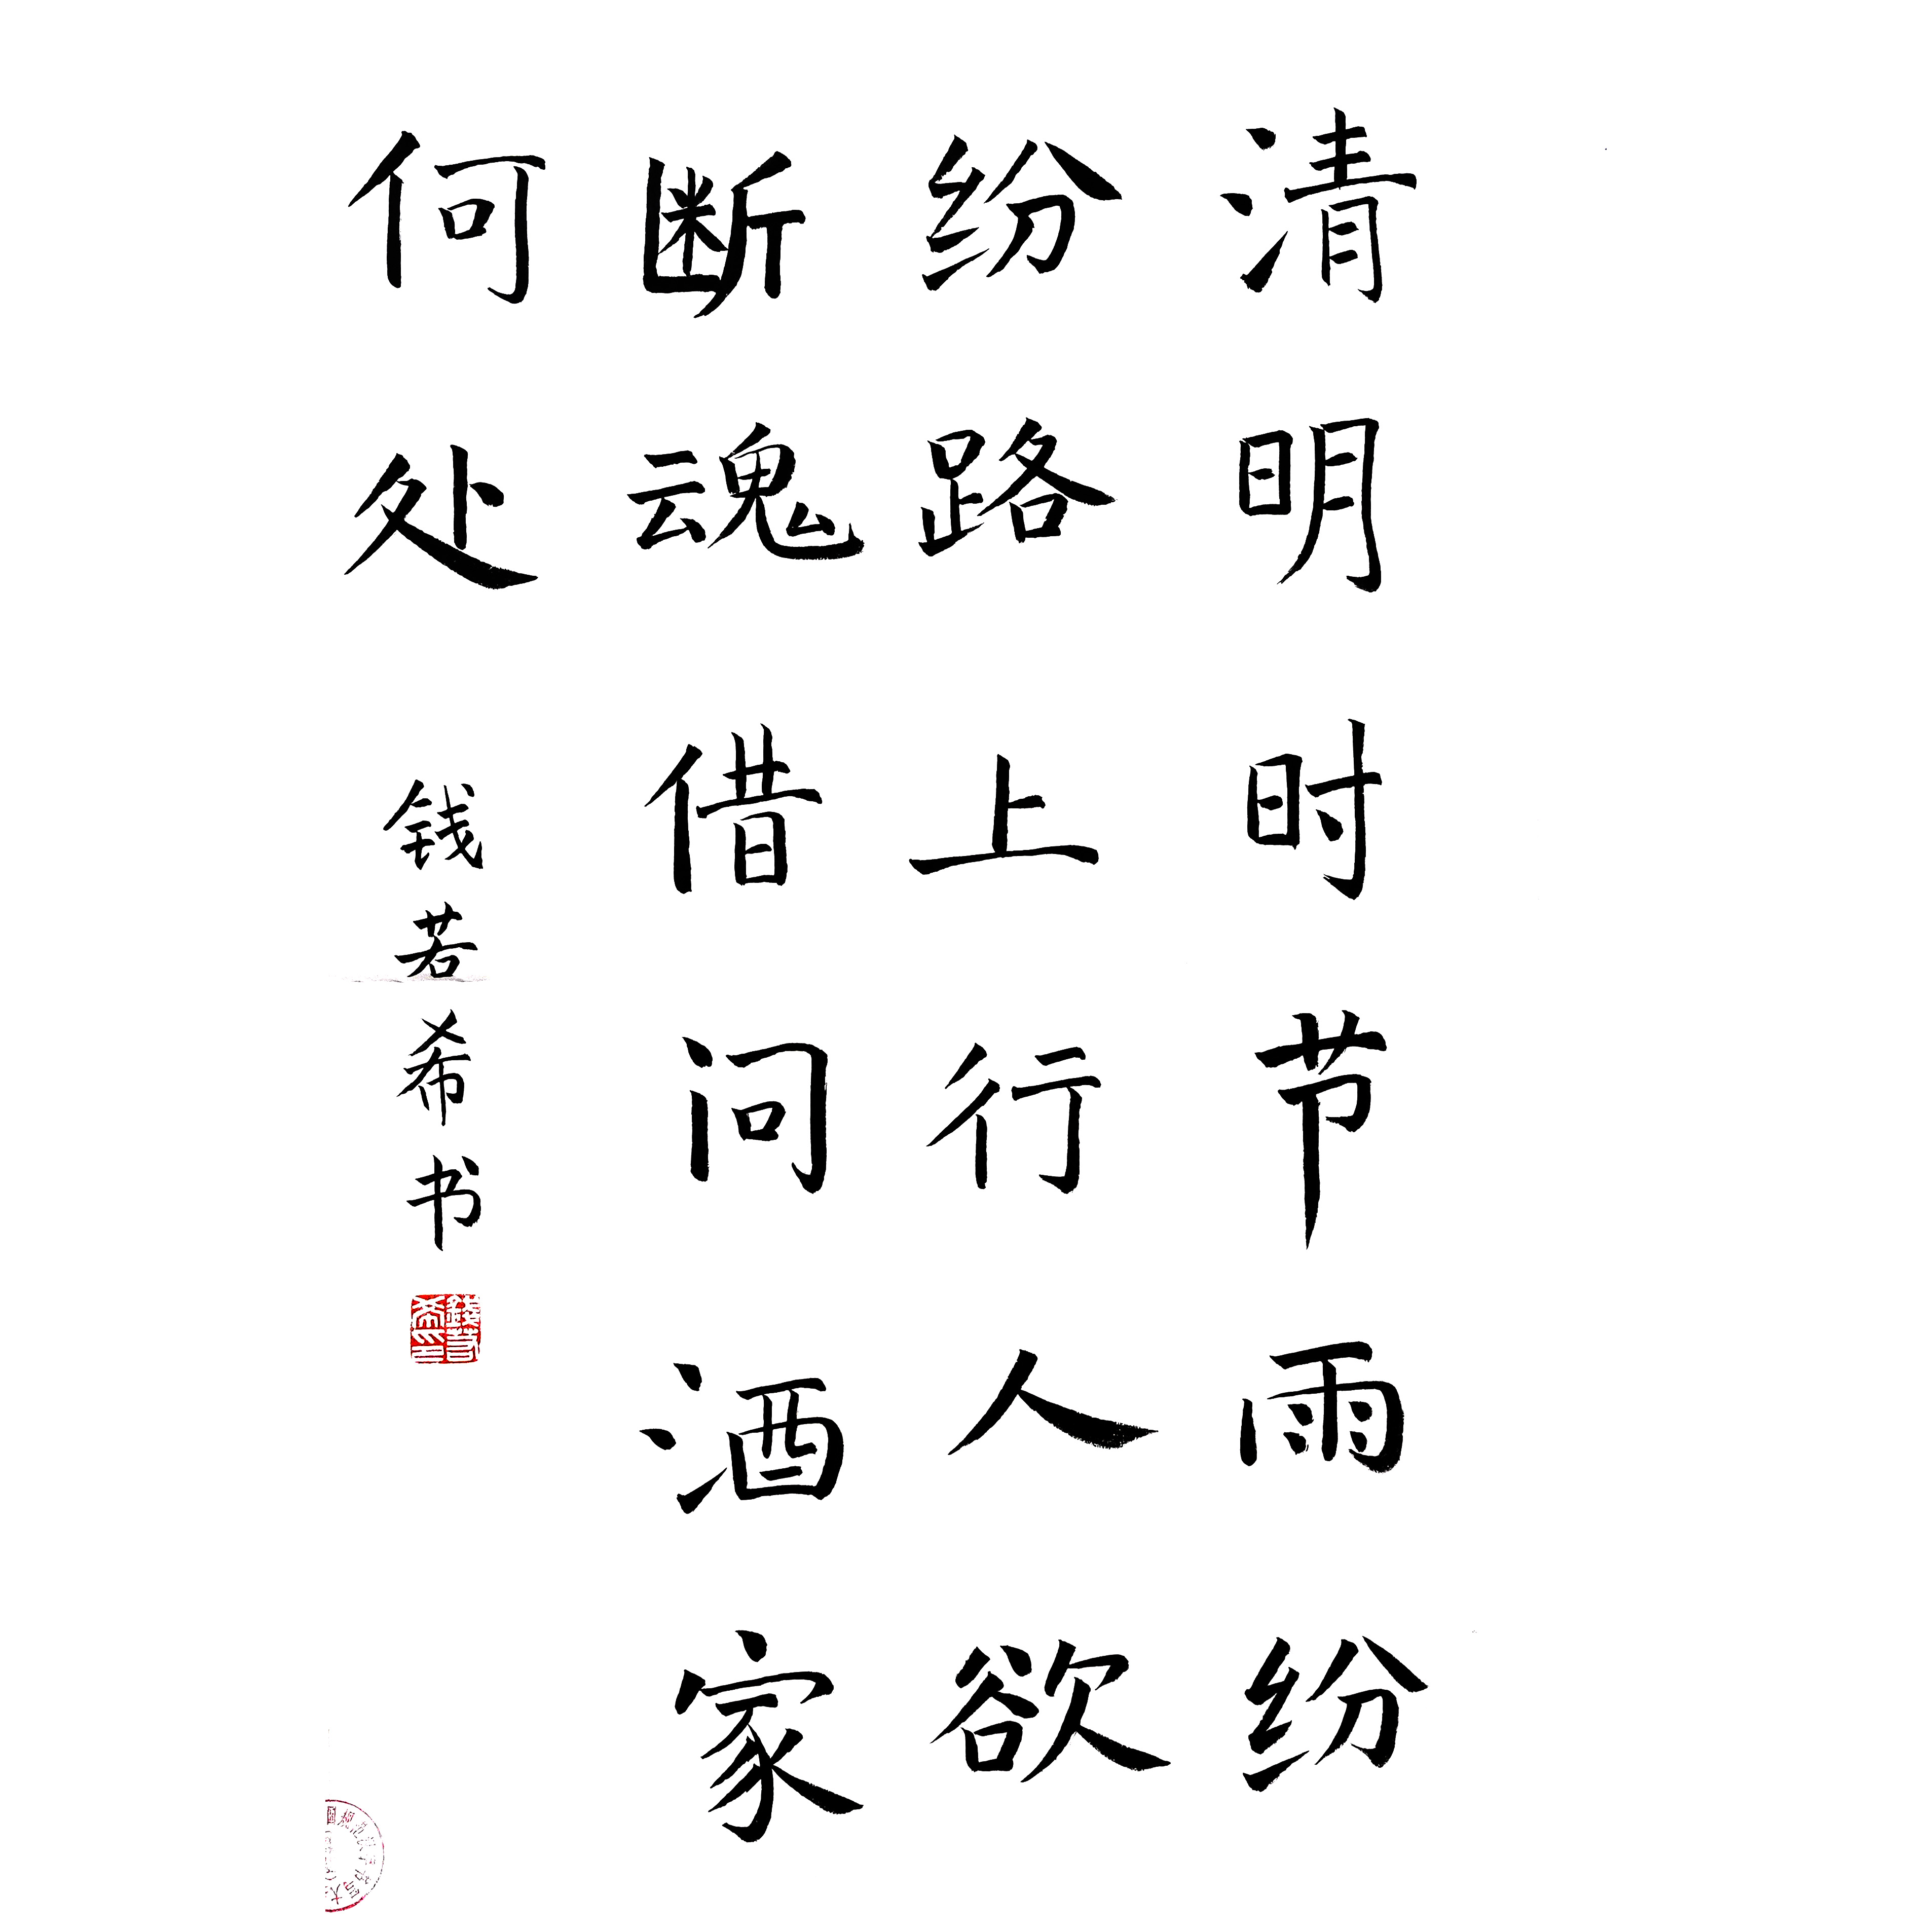 清明时节雨纷
纷路上行人欲
断魂借问酒家
何处 钱若希书